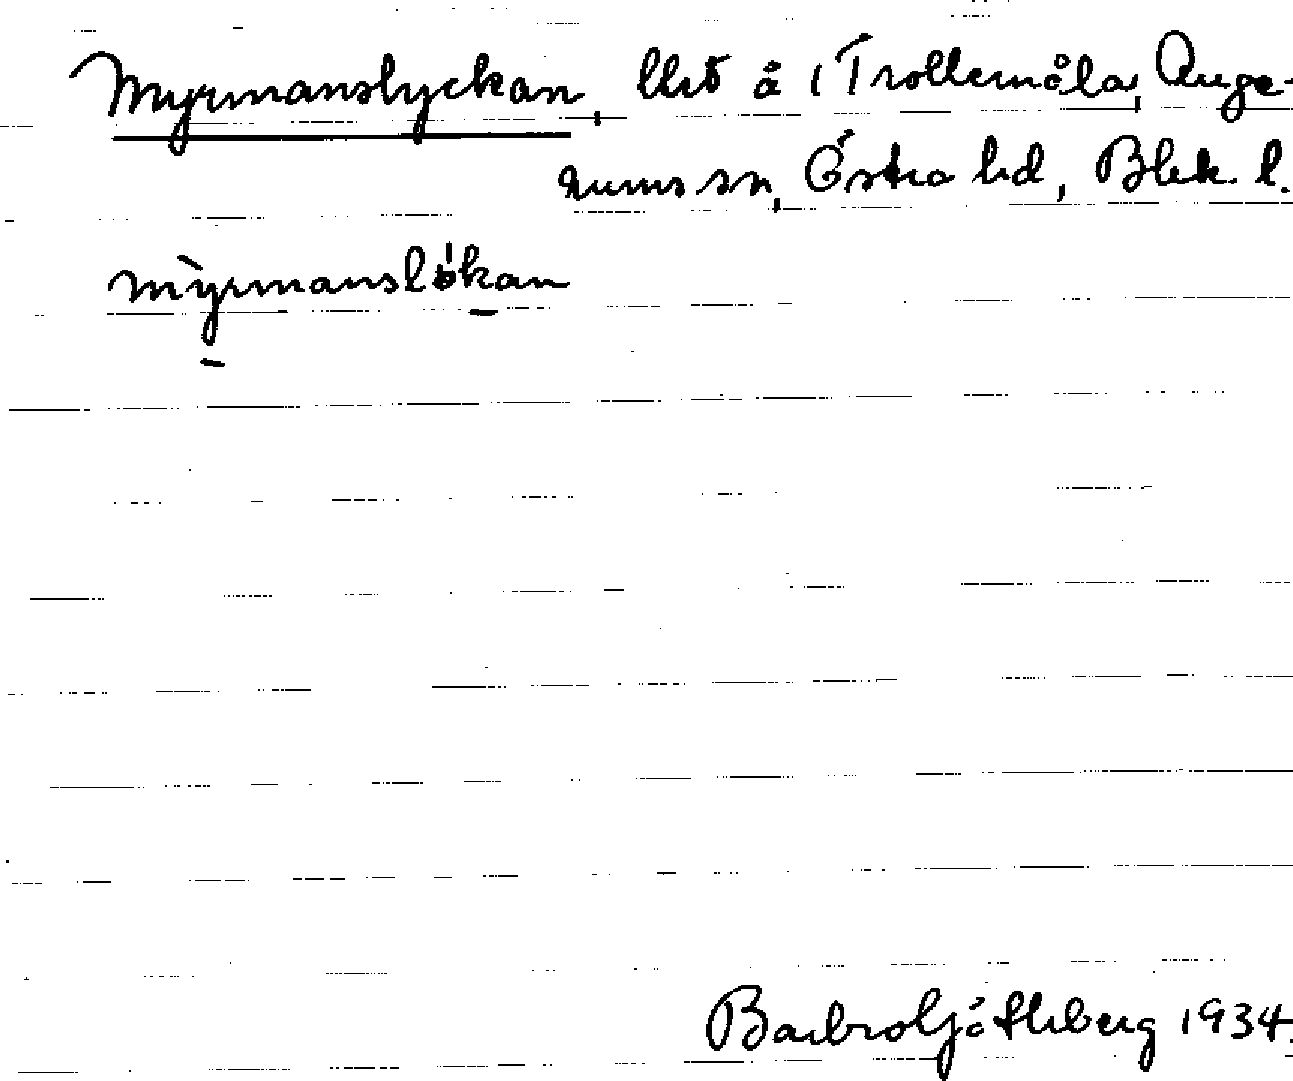 Myrmanslyckan, å i Trollemåla, Augerums sn, Östra hd, Blek. l.
mỳrmanslökan
Barbro Götheberg 1934.